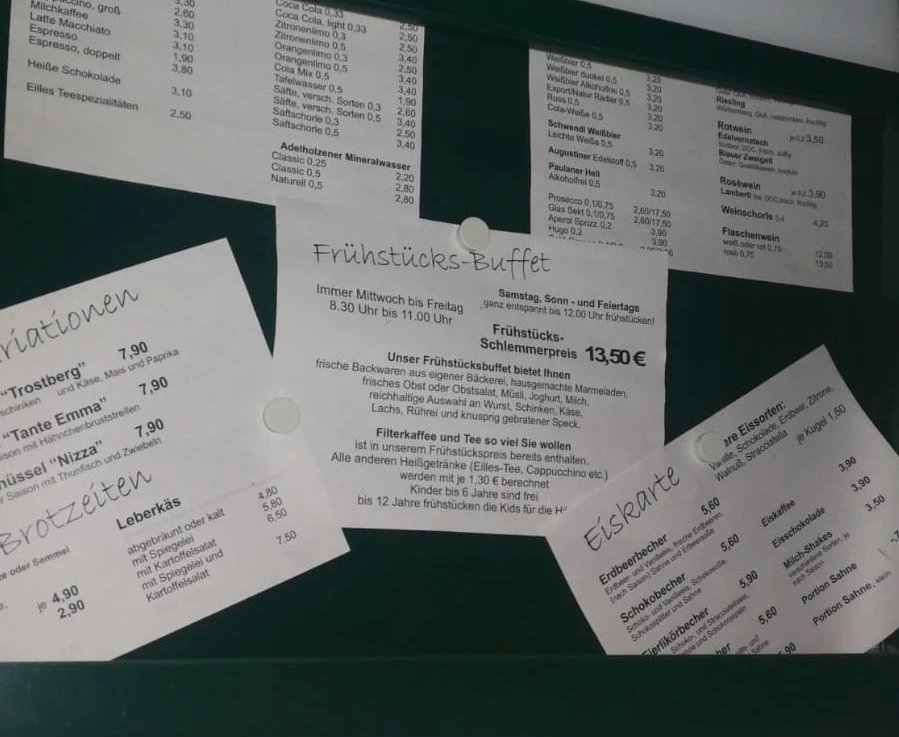 groß
Milchkaffee 2,60
Latte Macchiato 3,30
Espresso 3,10
Espresso, doppelt 3,10
1,90
Heiße Schokolade 3,80
3,10
Eilles Teespezialitäten 2,50
Coca Cola 0,33
Coca Cola, light 0,33 2,50
Zitronenlimo 0,3 2,50
Zitronenlimo 0,5
Orangenlimo 0,3 3,40
Orangenlimo 0,5 2,50
Cola Mix 0,5 3,40
Tafelwasser 0,5 3,40
Säfte, versch. Sorten 0,3 1,90
Säfte, versch. Sorten 0,5 2,60
Saftschorle 0,3 3,40
Saftschorle 0,5 2,50
3,40
Adelholzener Mineralwasser
Classic 0,25 2,20
Classic 0,5 2,80
Naturell 0,5 2,80
Weißbier 0,5
Weißbier dunkel 0,5 3,20
Weißbier Alkoholfrei 0,5 3,20
Export/Natur Radler 0,5 3,20
Russ 0,5 3,20
Cola-Weiße 0,5 3,20
Schwendl Weißbier
Leichte Weiße 0,5 3,20
Augustiner Edelstoff 0,5 3,20
Paulaner Hell
Alkoholfrei 0,5 3,20
Prosecco 0,1/0,75 2,60/17,50
Glas Sekt 0,1/0,75 2,60/17,50
Aperol Sprizz 0,2 3,90
Hugo 0,2 3,90
Riesling
Rotwein
Edelvernatsch je 0,2 3,50
Blauer Zweigelt
Roséwein je 0,2 3,90
Lamberti
Weinschorle 0,4 4,20
Flaschenwein
weiß oder rot 0,75 12,00
rosé 0,75 13,50
Frühstücks-Buffet
Immer Mittwoch bis Freitag
8.30 Uhr bis 11.00 Uhr
Samstag, Sonn - und Feiertags
„ganz entspannt bis 12.00 Uhr frühstücken!
Frühstücks-
Schlemmerpreis 13,50 €
Unser Frühstücksbuffet bietet Ihnen
frische Backwaren aus eigener Bäckerei, hausgemachte Marmeladen,
frisches Obst oder Obstsalat, Müsli, Joghurt, Milch,
reichhaltige Auswahl an Wurst, Schinken, Käse,
Lachs, Rührei und knusprig gebratener Speck.
Filterkaffee und Tee so viel Sie wollen
ist in unserem Frühstückspreis bereits enthalten.
Alle anderen Heißgetränke (Eilles-Tee, Cappucchino etc.)
werden mit je 1,30 € berechnet
Kinder bis 6 Jahre sind frei
bis 12 Jahre frühstücken die Kids für die
riationen
"Trostberg" 7,90
schinken und Käse, Mais und Paprika
"Tante Emma" 7,90
ison mit Hähnchenbruststreifen
hüssel "Nizza" 7,90
Saison mit Thunfisch und Zwiebeln
Brotzeiten
oder Semmel
je 4,90
2,90
Leberkäs
abgebräunt oder kalt 4,80
mit Spiegelei 5,80
mit Kartoffelsalat 6,50
mit Spiegelei und
Kartoffelsalat 7,50
Eiskarte
are Eissorten:
Vanille, Schokolade, Erdbeer, Zitrone,
Walnuß, Stracciatella je Kugel 1,50
Erdbeerbecher 5,60
Erdbeer- und Vanilleeis, frische Erdbeeren,
(nach Saison) Sahne und Erbeersoße
Schokobecher 5,60
Schoko- und Vanilleeis, Schokosoße,
Schokosplitter und Sahne
Eierlikörbecher 5,90
Schoko- und Stracciatellaeis,
5,60
Eiskaffee 3,90
Eisschokolade 3,90
Milch-Shakes 3,50
verschiedene Sorten, je
nach Saison
Portion Sahne
Portion Sahne, klein